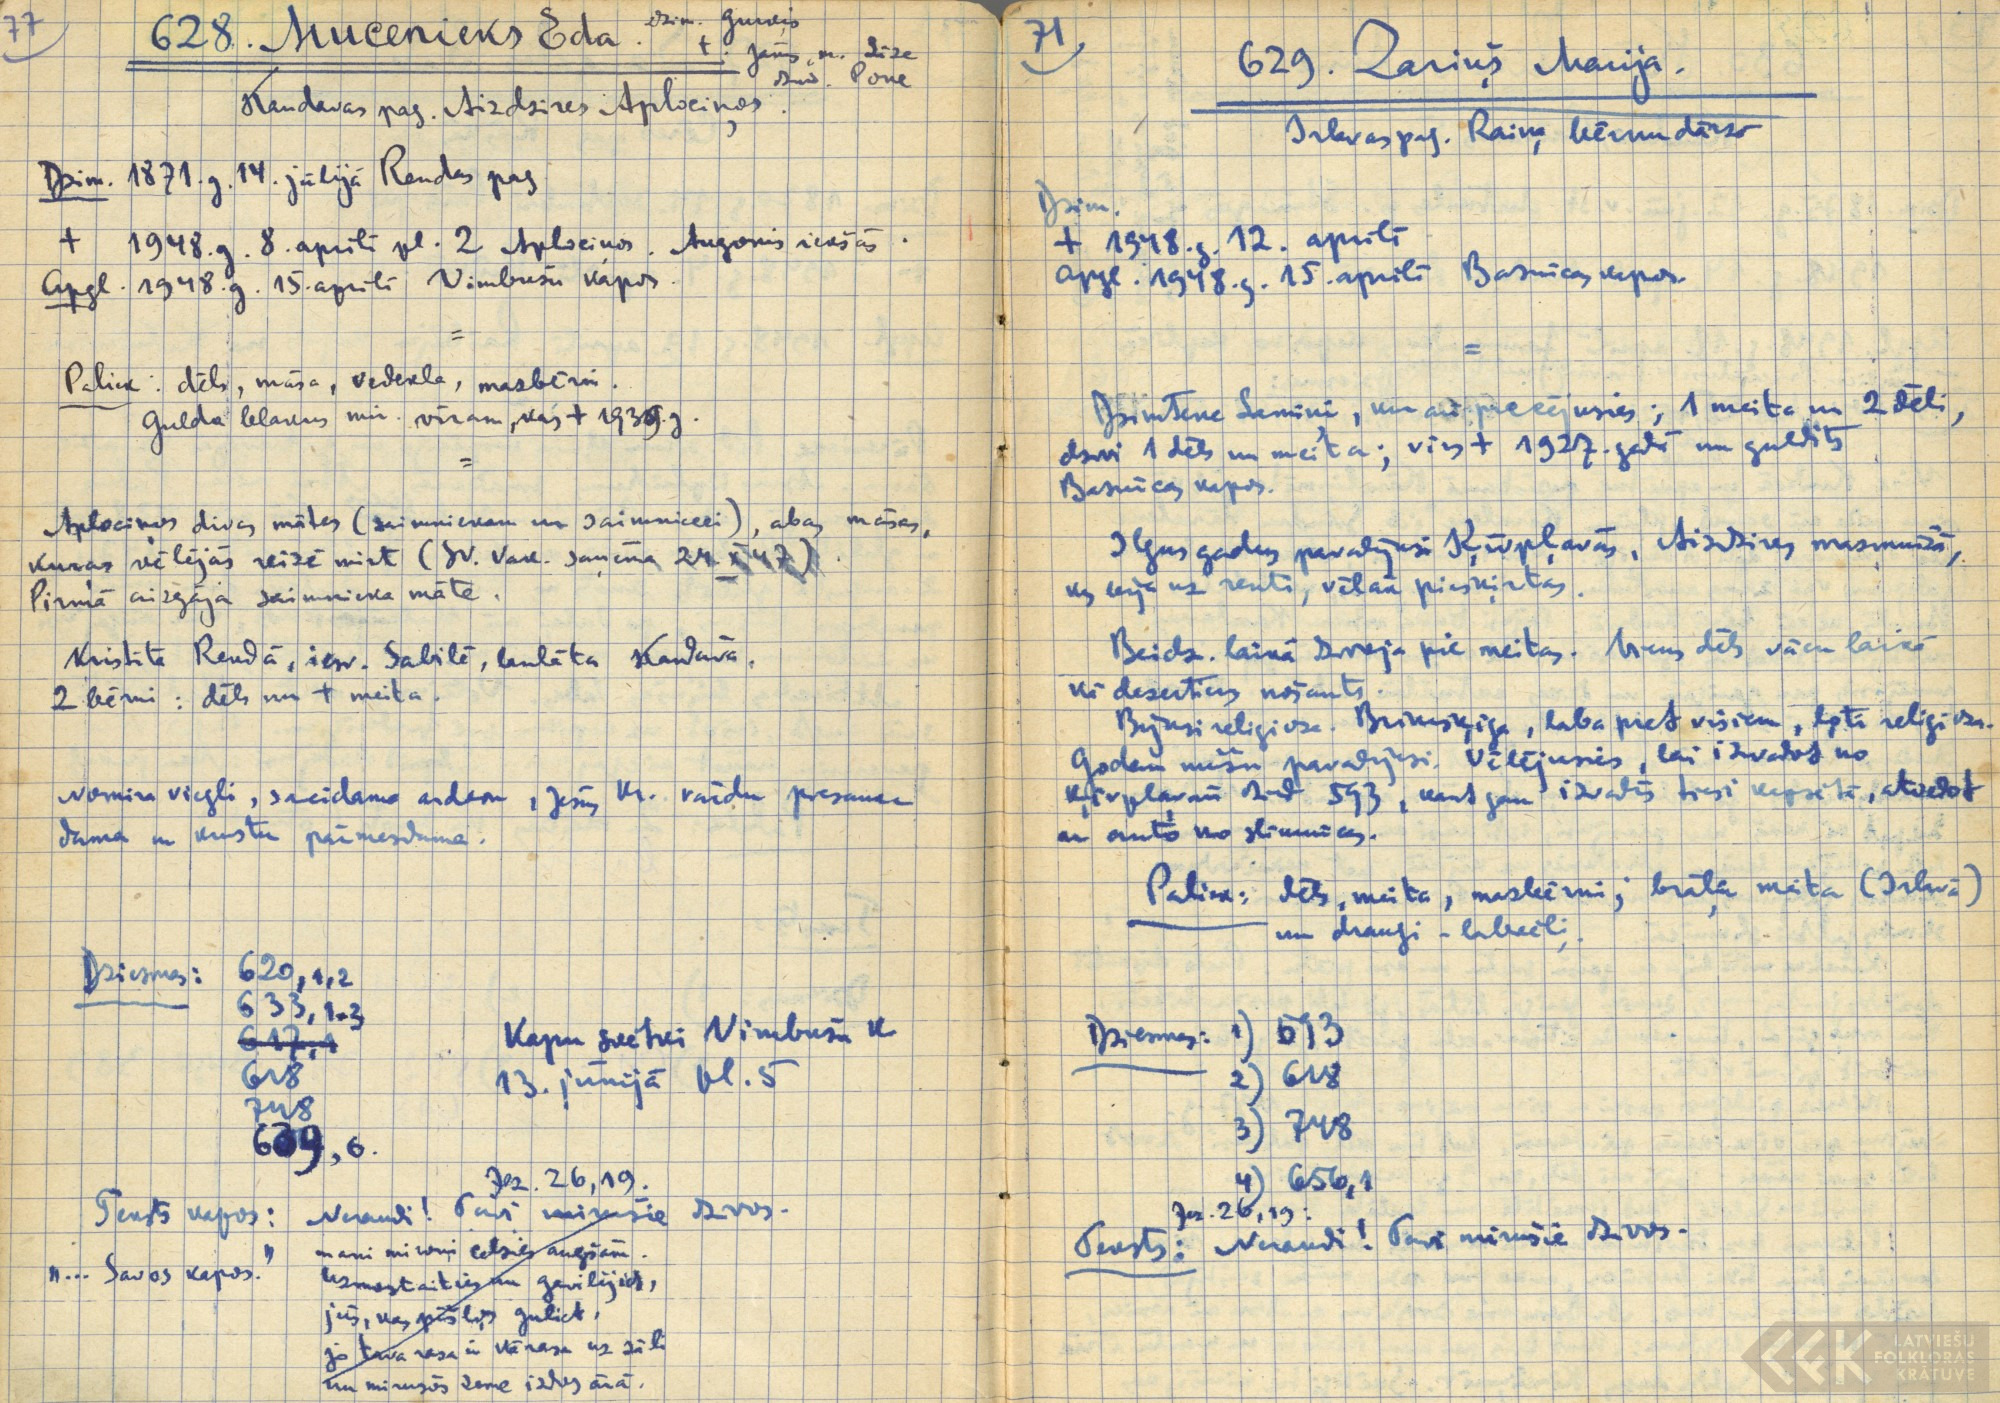 77
628. Mucenieks Eda. dzim. Gurkis
+ Jānis, m. Līze
dzud. Pone
Kandavas pag. Aizdzires Aplociņos.
Dzim. 1871.g. 14. jūlijā Rendas pag.
+ 1948.g. 8. aprilī pl. 2 Aplociņos. Augonis iekšās.
Apgl. 1948.g. 15. aprilī Nimbušu kapos.
=
Paliek: dēls, māsa, vedekla, mazbērni.
Gulda blakus mir. vīram, kas + 1939.g.
=
Aplociņos divas mātes (saimniekam un saimniecei), abas māsas,
kuras vēlējās reizē mirt (Sv. Vak. saņēma 24. X 47).
Pirmā aizgāja saimnieka māte.
Kristīta Rendā, iesv. Sabilē, laulāta Kandavā.
2 bērni: dēls un + meita.
Nomira viegli, sacīdama ardievu, Jēzus Kr. vārdu piesauk-
dama un krustu pārmezdama.
Dziesmas: 620,1,2
633,1-3
617,1
618
748
609,6.
Kapu svētki Nimbušu k
13. jūnijā pl. 5
Jez. 26,19.
Teksts kapos: Neraudi! Tavi mirušie dzīvos.
mani miroņi celsies augšām.
"... Savos kapos." Uzmostaities un gavilējiet,
jūs, kas pīšļos guliet,
jo tava rasa ir kā rasa uz zāli
un mirušos zeme izdos ārā.
71
629. Zariņš Marija.
Irlavas pag. Raiņa bērnu dārzs
Dzim.
+ 1948.g. 12. aprilī
Apgl. 1948.g. 15. aprilī Baznīcas kapos.
=
Dzimtene Lamiņi, kur arī precējusies; 1 meita un 2 dēli,
dzīvi 1 dēls un meita; vīrs + 1927. gadā un guldīts
Baznīcas kapos.
Ilgus gadus pavadījusi Ķīvpļavās, Aizdzires mazmuižā,
ko bija uz renti, vēlāk piešķirtas.
Beidz. laikā dzīvoja pie meitas. Viens dēls vācu laikā
kā dezertieris nošauts.
Bijusi religioza. Brīnišķīga, laba pret visiem, ļoti religioza.
Godam mūžu pavadījusi. Vēlējusies, lai izvadot no
Ķīvpļavām dzied 593, kaut gan izvadīs tiesi kapsētā, atvedot
ar auto no slimnīcas.
Paliek: dēls, meita, mazbērni; brāļa meita (Irlavā)
un draugi - labvēļi.
Dziesmas: 1) 593
2) 618
3) 748
4) 656,1
Jez. 26,19:
Teksts: Neraudi! Tavi mirušie dzīvos.
LATVIEŠU
FOLKLORAS
KRĀTUVE